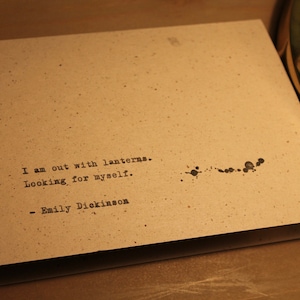 I am out with lanterns.
Looking for myself.
- Emily Dickinson